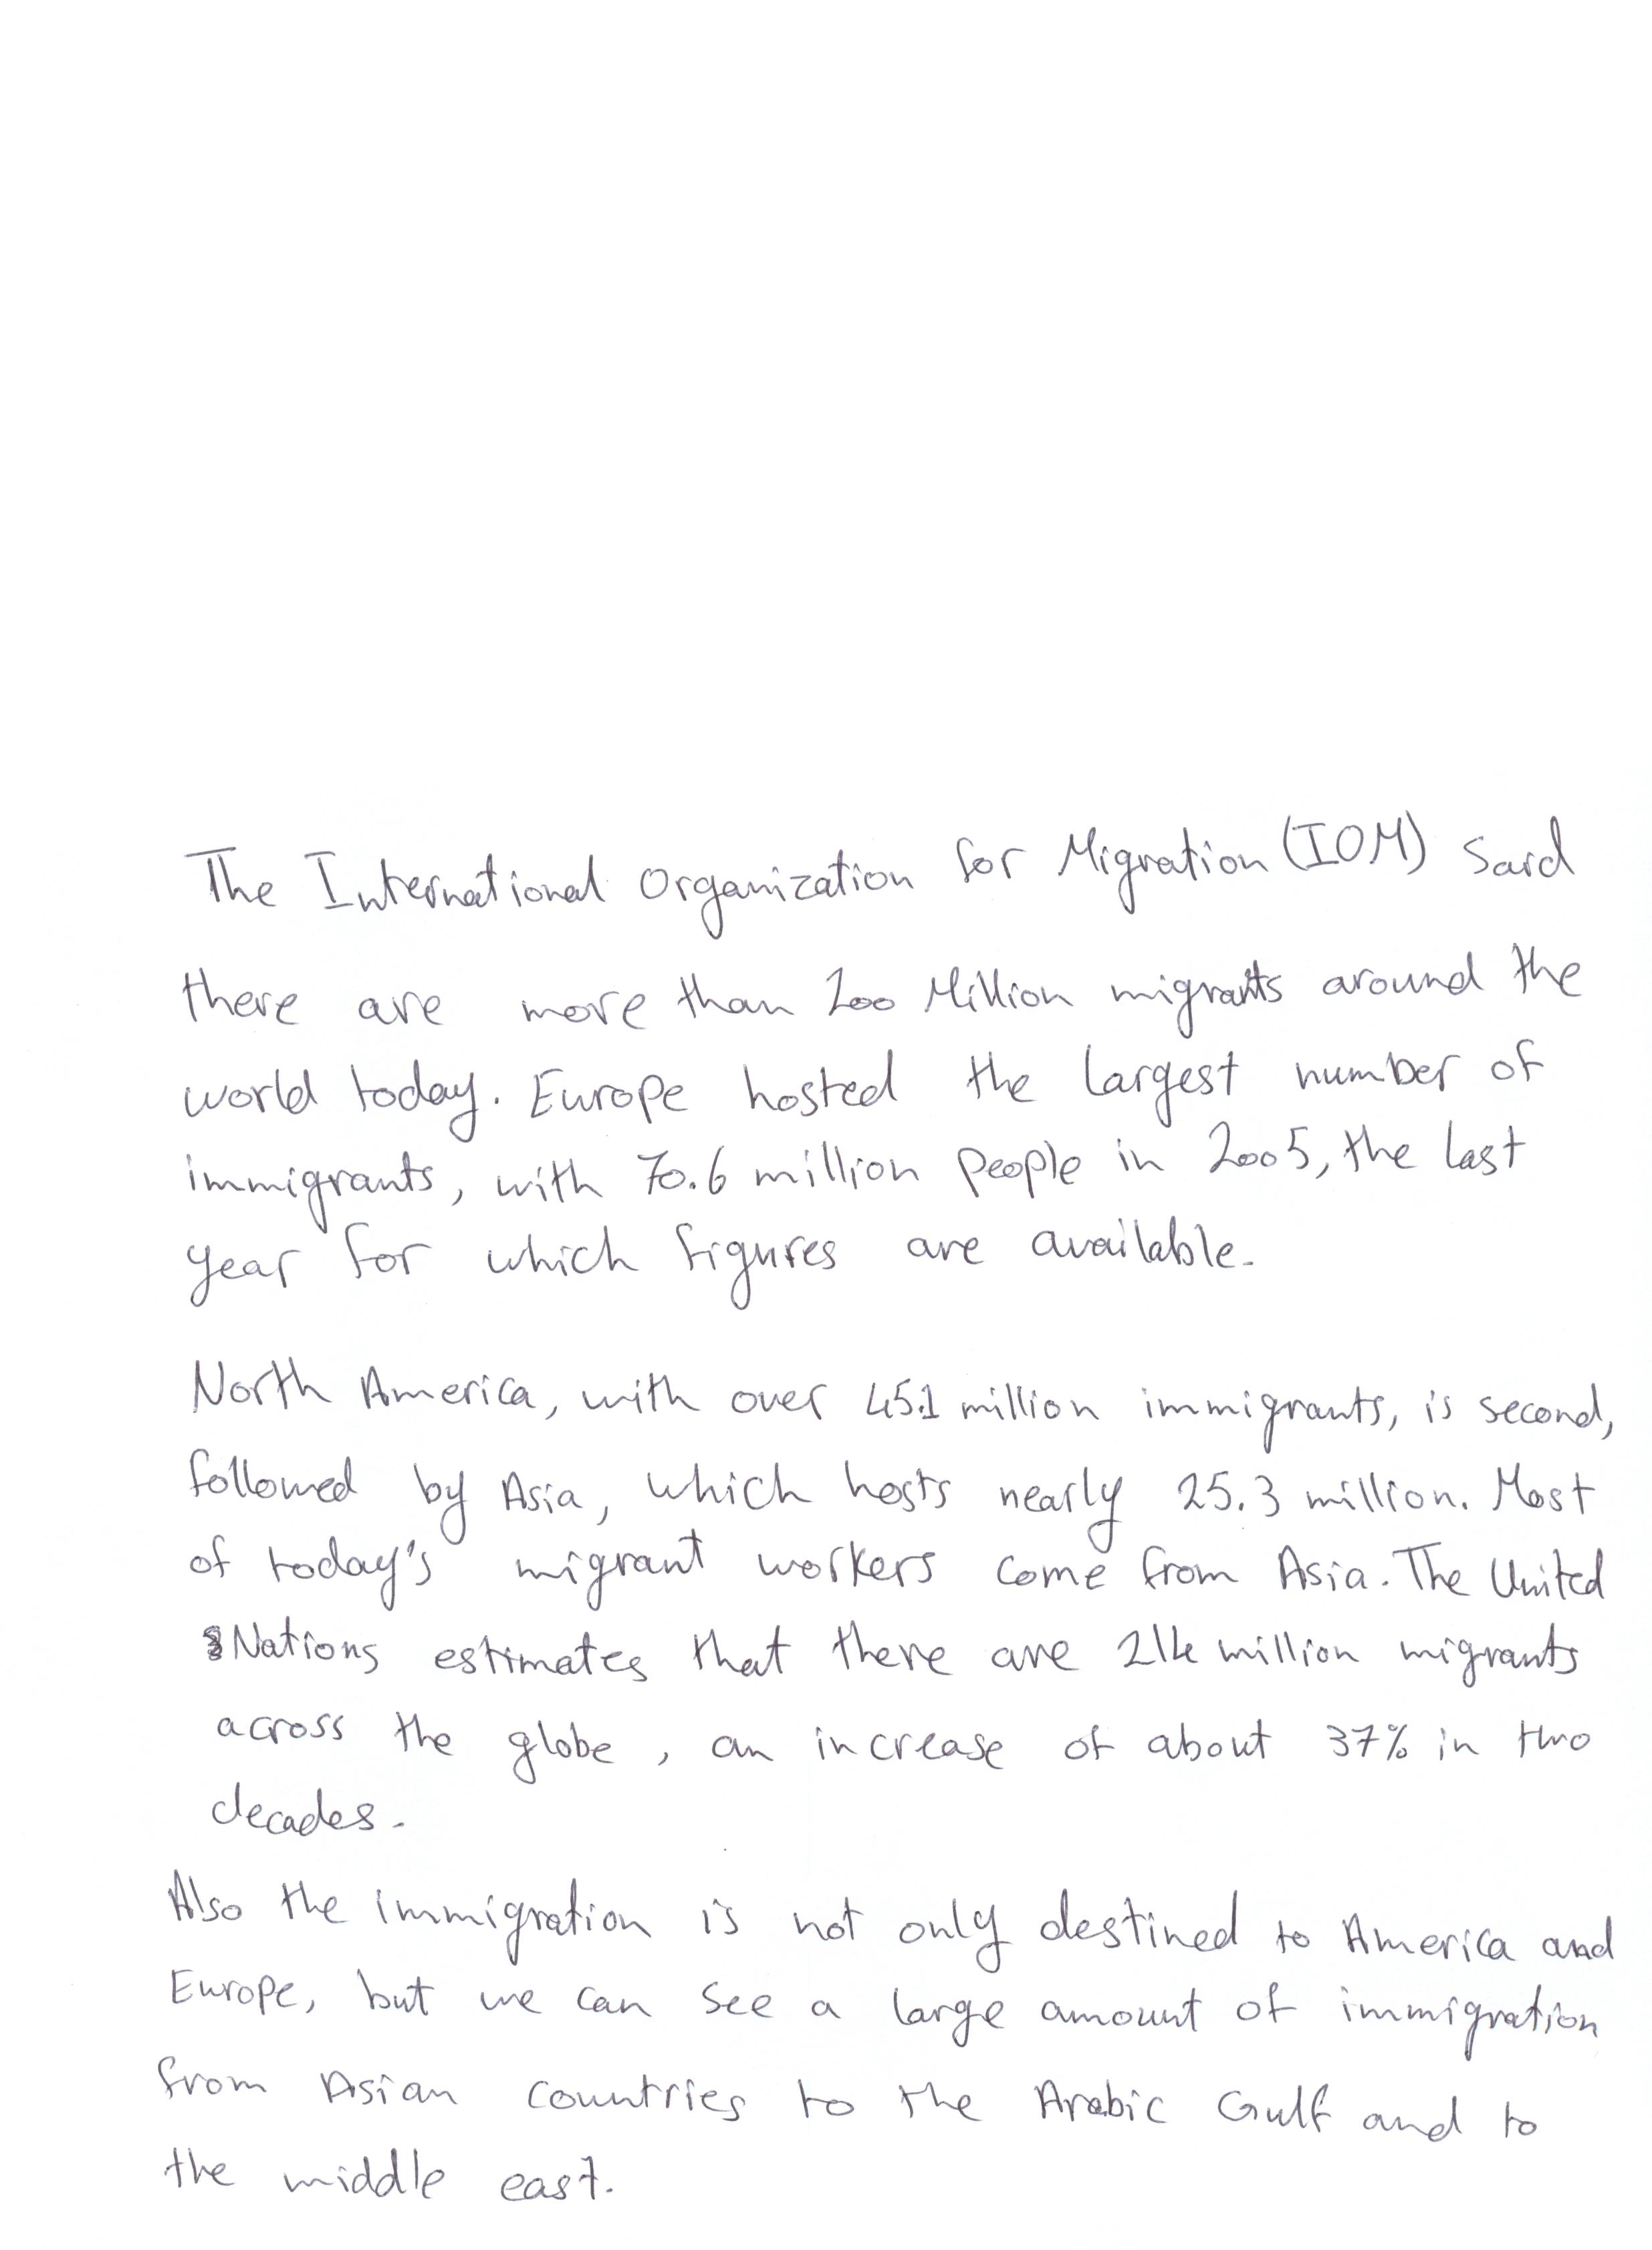 The International Organization for Migration (IOM) said
there are more than 200 Million migrants around the
world today. Europe hosted the largest number of
immigrants, with 70.6 million people in 2005, the last
year for which figures are available.
North America, with over 45.1 million immigrants, is second,
followed by Asia, which hosts nearly 25.3 million. Most
of today's migrant workers come from Asia. The United
Nations estimates that there are 214 million migrants
across the globe, an increase of about 37% in two
decades.
Also the immigration is not only destined to America and
Europe, but we can see a large amount of immigration
from Asian countries to the Arabic Gulf and to
the middle east.